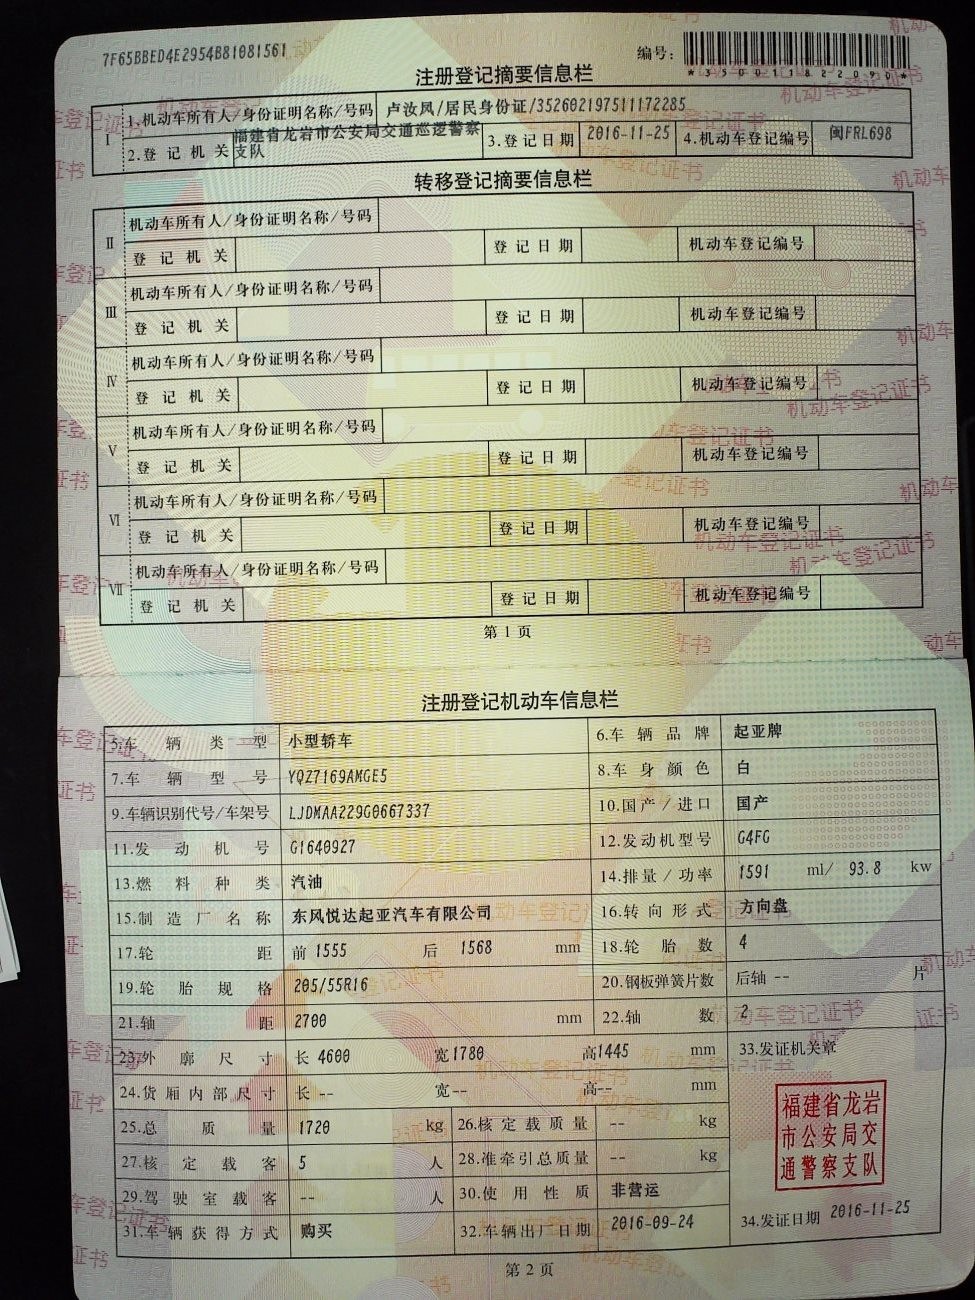 7F65BBED4E2954B81081561
编号：
*350011822090*
注册登记摘要信息栏
Ⅰ 1.机动车所有人/身份证明名称/号码 卢汝凤/居民身份证/352602197511172285
2.登记机关 福建省龙岩市公安局交通巡逻警察支队 3.登记日期 2016-11-25 4.机动车登记编号 闽FRL698
转移登记摘要信息栏
Ⅱ 机动车所有人/身份证明名称/号码
登记机关 登记日期 机动车登记编号
Ⅲ 机动车所有人/身份证明名称/号码
登记机关 登记日期 机动车登记编号
Ⅳ 机动车所有人/身份证明名称/号码
登记机关 登记日期 机动车登记编号
Ⅴ 机动车所有人/身份证明名称/号码
登记机关 登记日期 机动车登记编号
Ⅵ 机动车所有人/身份证明名称/号码
登记机关 登记日期 机动车登记编号
Ⅶ 机动车所有人/身份证明名称/号码
登记机关 登记日期 机动车登记编号
第1页
注册登记机动车信息栏
5.车辆类型 小型轿车 6.车辆品牌 起亚牌
7.车辆型号 YQZ7169AMGE5 8.车身颜色 白
9.车辆识别代号/车架号 LJDMAA229G0667337 10.国产/进口 国产
11.发动机号 G1640927 12.发动机型号 G4FG
13.燃料种类 汽油 14.排量/功率 1591 ml/ 93.8 kw
15.制造厂名称 东风悦达起亚汽车有限公司 16.转向形式 方向盘
17.轮距 前 1555 后 1568 mm 18.轮胎数 4
19.轮胎规格 205/55R16 20.钢板弹簧片数 后轴 -- 片
21.轴距 2700 mm 22.轴数 2
23.外廓尺寸 长 4600 宽 1780 高 1445 mm 33.发证机关章
24.货厢内部尺寸 长 -- 宽 -- 高 -- mm
25.总质量 1720 kg 26.核定载质量 -- kg
27.核定载客 5 人 28.准牵引总质量 -- kg
29.驾驶室载客 -- 人 30.使用性质 非营运
31.车辆获得方式 购买 32.车辆出厂日期 2016-09-24 34.发证日期 2016-11-25
福建省龙岩
市公安局交
通警察支队
第2页